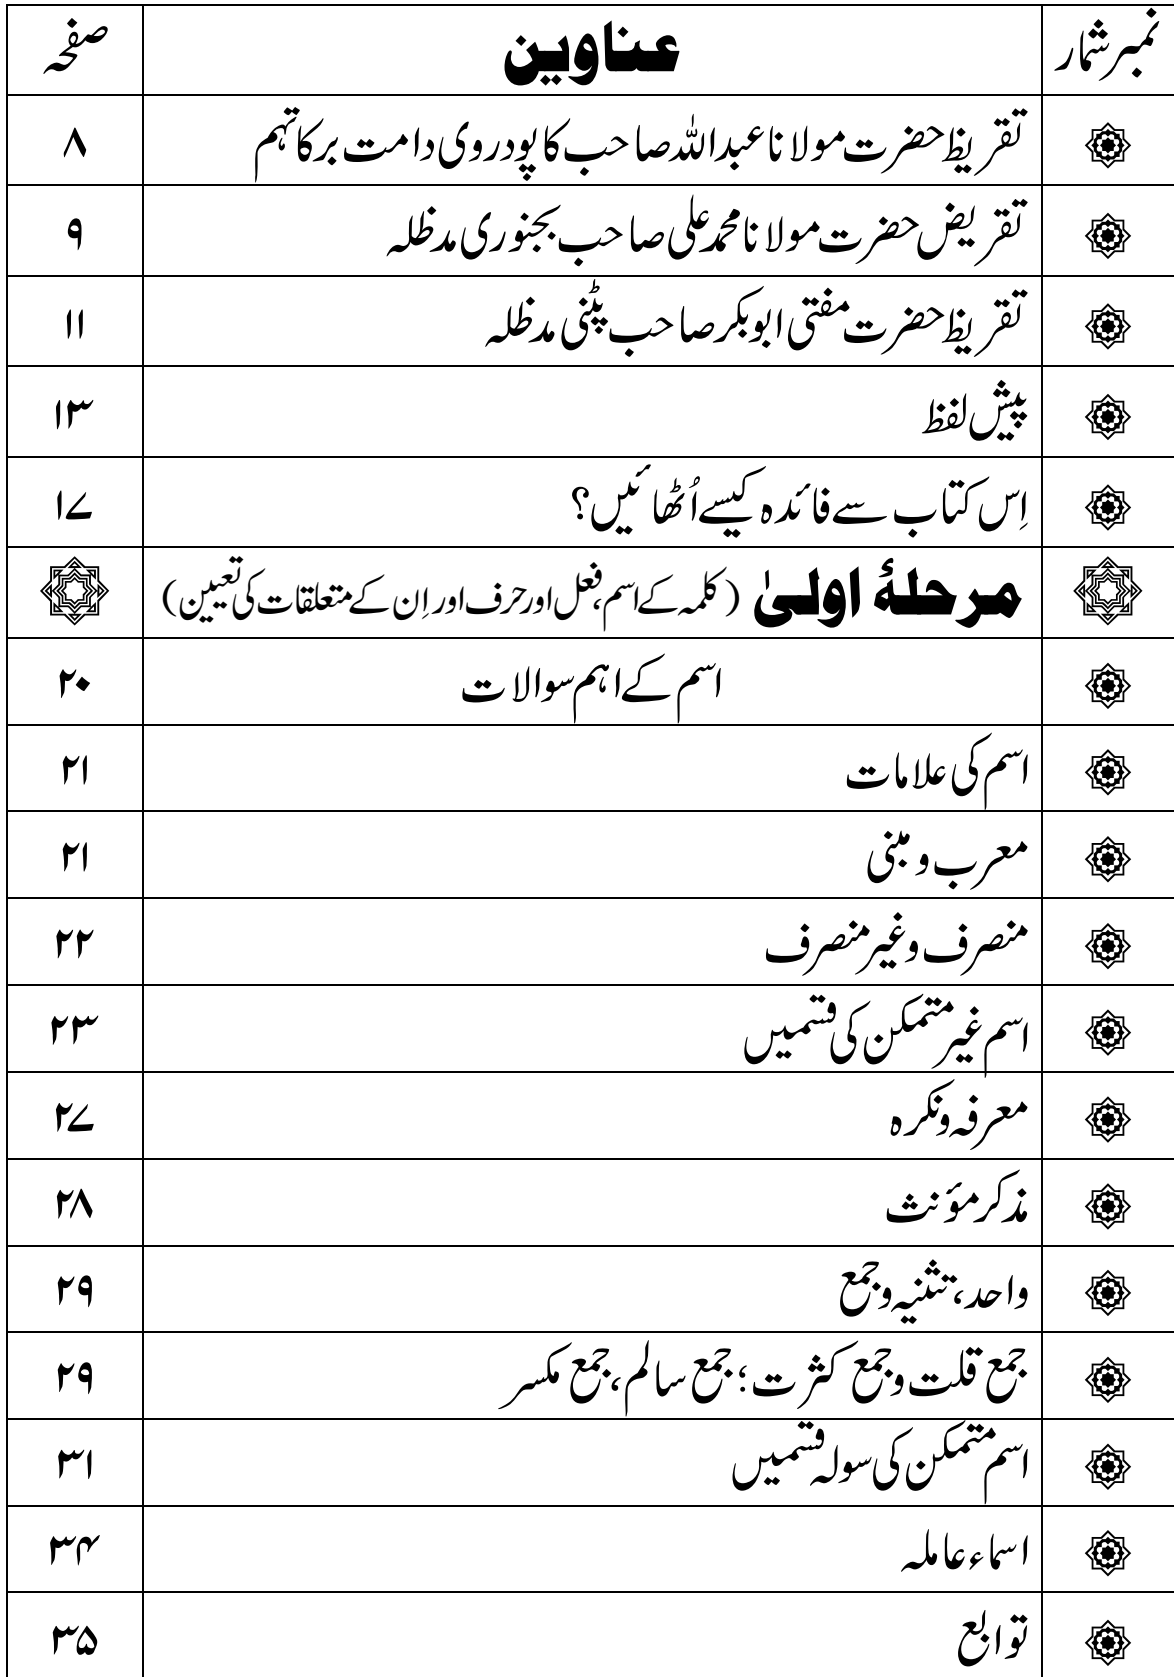 نمبر شمار عناوین صفحہ
تقریظ حضرت مولانا عبد اللہ صاحب کاپودروی دامت برکاتہم ۸
تقریض حضرت مولانا محمد علی صاحب بجنوری مدظلہ ۹
تقریظ حضرت مفتی ابوبکر صاحب پٹنی مدظلہ ۱۱
پیش لفظ ۱۳
اِس کتاب سے فائدہ کیسے اُٹھائیں؟ ۱۷
مرحلۂ اولیٰ (کلمہ کے اسم، فعل اور حرف اور اِن کے متعلقات کی تعیین)
اسم کے اہم سوالات ۲۰
اسم کی علامات ۲۱
معرب و مبنی ۲۱
منصرف و غیر منصرف ۲۲
اسم غیر متمکن کی قسمیں ۲۳
معرفہ و نکرہ ۲۷
مذکر مؤنث ۲۸
واحد، تثنیہ و جمع ۲۹
جمع قلت و جمع کثرت؛ جمع سالم، جمع مکسر ۲۹
اسم متمکن کی سولہ قسمیں ۳۱
اسماء عاملہ ۳۴
توابع ۳۵